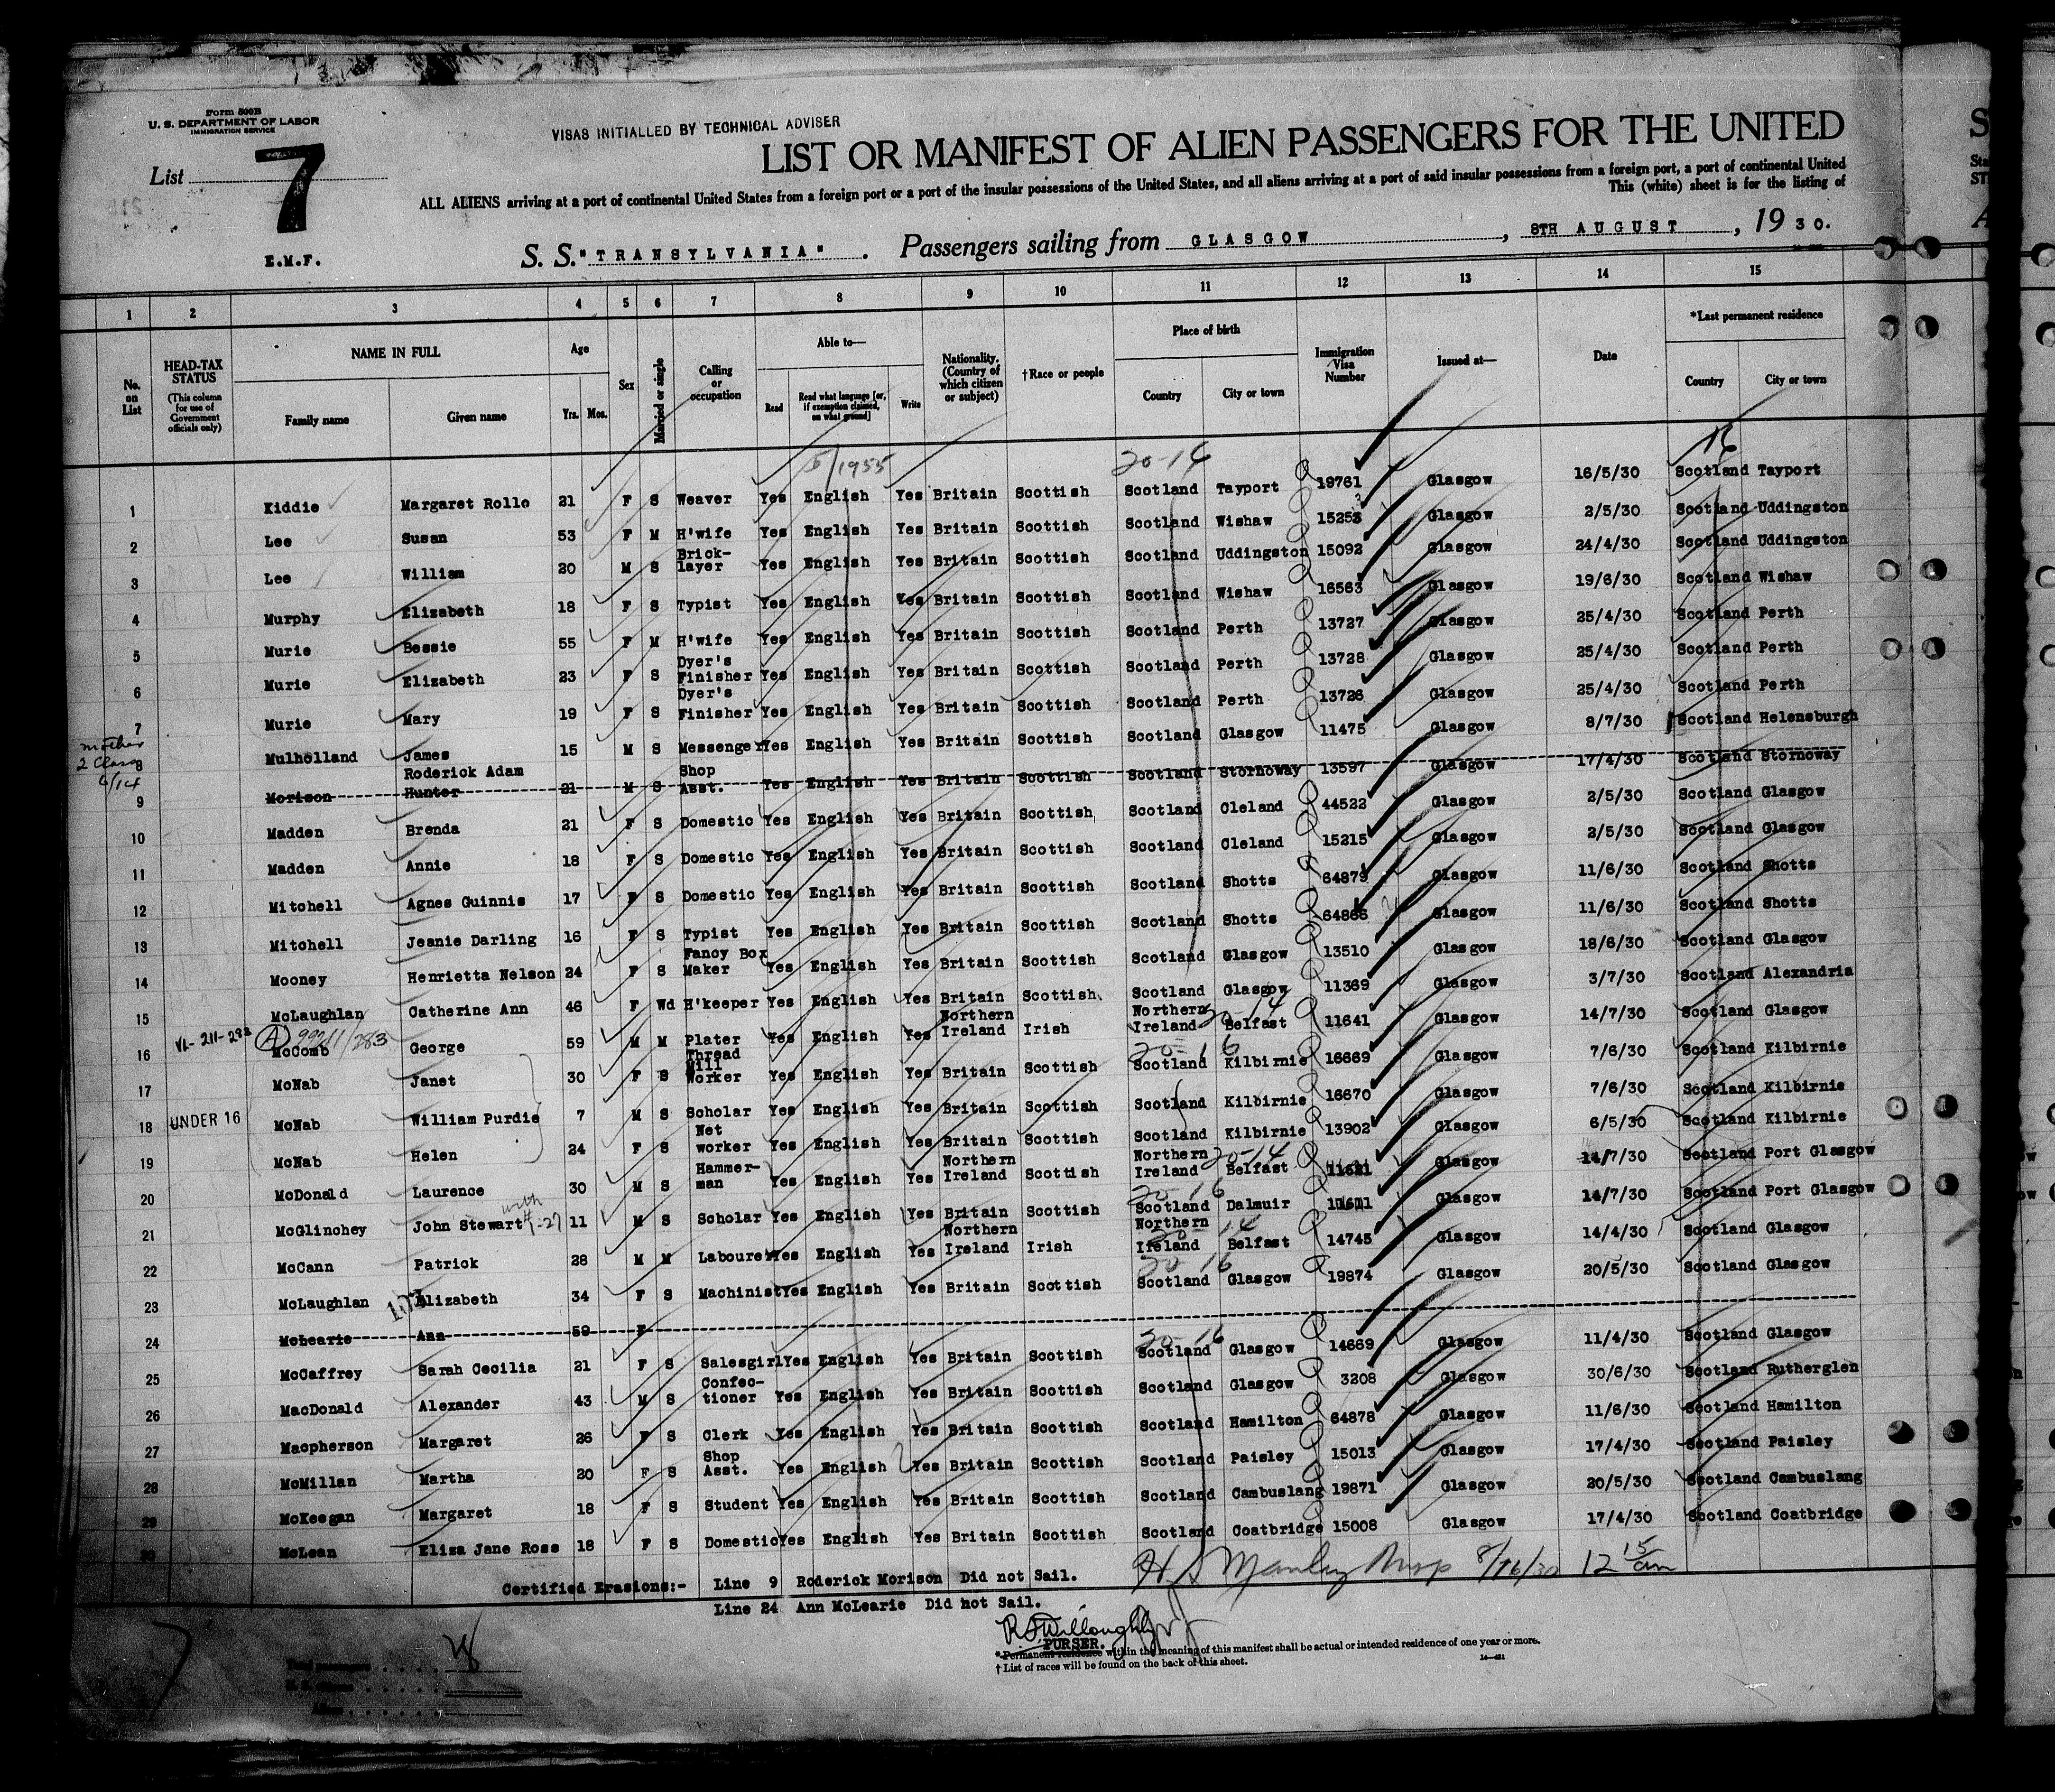 Form 500B
U. S. DEPARTMENT OF LABOR
IMMIGRATION SERVICE
VISAS INITIALLED BY TECHNICAL ADVISER
LIST OR MANIFEST OF ALIEN PASSENGERS FOR THE UNITED
List 7
ALL ALIENS arriving at a port of continental United States from a foreign port or a port of the insular possessions of the United States, and all aliens arriving at a port of said insular possessions from a foreign port, a port of continental United
This (white) sheet is for the listing of
E.M.F.
S. S. "TRANSYLVANIA". Passengers sailing from GLASGOW, 8TH AUGUST, 1930.
1 2 3 4 5 6 7 8 9 10 11 12 13 14 15
No. on List
HEAD-TAX STATUS (This column for use of Government officials only)
NAME IN FULL Family name Given name
Age Yrs. Mos.
Sex
Married or single
Calling or occupation
Able to— Read Read what language [or, if exemption claimed, on what ground] Write
Nationality. (Country of which citizen or subject)
†Race or people
Place of birth Country City or town
Immigration Visa Number
Issued at—
Date
*Last permanent residence Country City or town
5/1955 20-14 16
1 Kiddie Margaret Rollo 21 F S Weaver Yes English Yes Britain Scottish Scotland Tayport 19761 Glasgow 16/5/30 Scotland Tayport
2 Lee Susan 53 F M H'wife Yes English Yes Britain Scottish Scotland Wishaw 15253 Glasgow 2/5/30 Scotland Uddingston
3 Lee William 20 M S Brick-layer Yes English Yes Britain Scottish Scotland Uddingston 15092 Glasgow 24/4/30 Scotland Uddingston
4 Murphy Elizabeth 18 F S Typist Yes English Yes Britain Scottish Scotland Wishaw 16563 Glasgow 19/6/30 Scotland Wishaw
5 Murie Bessie 55 F M H'wife Yes English Yes Britain Scottish Scotland Perth 13727 Glasgow 25/4/30 Scotland Perth
6 Murie Elizabeth 23 F S Dyer's Finisher Yes English Yes Britain Scottish Scotland Perth 13728 Glasgow 25/4/30 Scotland Perth
7 Murie Mary 19 F S Dyer's Finisher Yes English Yes Britain Scottish Scotland Perth 13726 Glasgow 25/4/30 Scotland Perth
mother 2 Class 6/14
8 Mulholland James 15 M S Messenger Yes English Yes Britain Scottish Scotland Glasgow 11475 Glasgow 8/7/30 Scotland Helensburgh
9 Morison Roderick Adam Hunter 21 M S Shop Asst. Yes English Yes Britain Scottish Scotland Stornoway 13597 Glasgow 17/4/30 Scotland Stornoway
10 Madden Brenda 21 F S Domestic Yes English Yes Britain Scottish Scotland Cleland 44522 Glasgow 2/5/30 Scotland Glasgow
11 Madden Annie 18 F S Domestic Yes English Yes Britain Scottish Scotland Cleland 15215 Glasgow 2/5/30 Scotland Glasgow
12 Mitchell Agnes Guinnis 17 F S Domestic Yes English Yes Britain Scottish Scotland Shotts 64879 Glasgow 11/6/30 Scotland Shotts
13 Mitchell Jeanie Darling 16 F S Typist Yes English Yes Britain Scottish Scotland Shotts 64866 Glasgow 11/6/30 Scotland Shotts
14 Mooney Henrietta Nelson 24 F S Fancy Box Maker Yes English Yes Britain Scottish Scotland Glasgow 13510 Glasgow 18/6/30 Scotland Glasgow
15 McLaughlan Catherine Ann 46 F Wd H'keeper Yes English Yes Britain Scottish Scotland Glasgow 11369 Glasgow 3/7/30 Scotland Alexandria
16 McComb George 59 M M Plater Yes English Yes Northern Ireland Irish Northern Ireland Belfast 20-14 11641 Glasgow 14/7/30 Scotland Glasgow
17 McNab Janet 30 F S Thread Mill Worker Yes English Yes Britain Scottish 20-16 Scotland Kilbirnie 16669 Glasgow 7/6/30 Scotland Kilbirnie
18 UNDER 16 McNab William Purdie 7 M S Scholar Yes English Yes Britain Scottish Scotland Kilbirnie 16670 Glasgow 7/6/30 Scotland Kilbirnie
19 McNab Helen 24 F S Net worker Yes English Yes Britain Scottish Scotland Kilbirnie 13902 Glasgow 6/5/30 Scotland Kilbirnie
20 McDonald Laurence 30 M S Hammer-man Yes English Yes Northern Ireland Scottish Northern Ireland Belfast 20-14 Glasgow 14/7/30 Scotland Port Glasgow
21 McGlinchey John Stewart with 11 M S Scholar Yes English Yes Britain Scottish 20-16 Scotland Dalmuir Glasgow 14/7/30 Scotland Port Glasgow
22 McCann Patrick 28 M M Labourer Yes English Yes Northern Ireland Irish Northern Ireland Belfast 20-14 14745 Glasgow 14/4/30 Scotland Glasgow
23 McLaughlan Elizabeth 34 F S Machinist Yes English Yes Britain Scottish 20-16 Scotland Glasgow 19874 Glasgow 20/5/30 Scotland Glasgow
24 McLearie Ann 59 F
25 McCaffrey Sarah Cecilia 21 F S Salesgirl Yes English Yes Britain Scottish 20-16 Scotland Glasgow 14669 Glasgow 11/4/30 Scotland Glasgow
26 MacDonald Alexander 43 M S Confec-tioner Yes English Yes Britain Scottish Scotland Glasgow 3208 Glasgow 30/6/30 Scotland Rutherglen
27 Macpherson Margaret 26 F S Clerk Yes English Yes Britain Scottish Scotland Hamilton 64878 Glasgow 11/6/30 Scotland Hamilton
28 McMillan Martha 20 F S Shop Asst. Yes English Yes Britain Scottish Scotland Paisley 15013 Glasgow 17/4/30 Scotland Paisley
29 McKeegan Margaret 18 F S Student Yes English Yes Britain Scottish Scotland Cambuslang 19871 Glasgow 20/5/30 Scotland Cambuslang
30 McLean Eliza Jane Ross 18 F S Domestic Yes English Yes Britain Scottish Scotland Coatbridge 15008 Glasgow 17/4/30 Scotland Coatbridge
Certified Erasions:- Line 9 Roderick Morison Did not Sail.
Line 24 Ann McLearie Did not Sail.
H S Manley Insp 8/16/30 12 15 am
R. Willoughby
PURSER.
* Permanent residence within the meaning of this manifest shall be actual or intended residence of one year or more.
† List of races will be found on the back of this sheet.